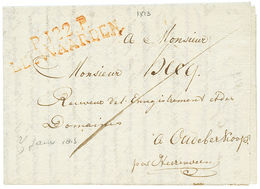 1813
P.122.P.
LEEUWAARDEN
A Monsieur
Monsieur Becq
Receveur del Enregistrement et des
Domaines
à Oudeberkoop
par Heerenveen
Janv 1813